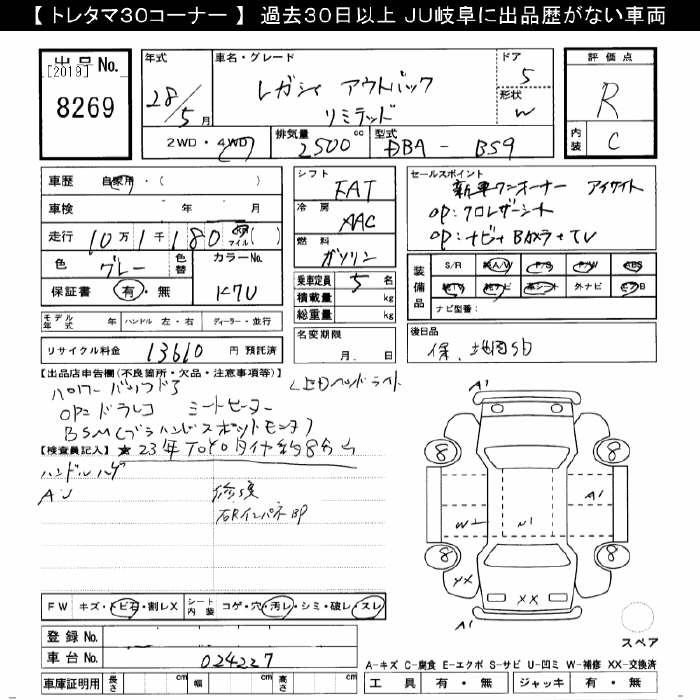 【 トレタマ30コーナー 】 過去30日以上 JU岐阜に出品歴がない車両
出品No.
[2019]
8269
年式
28/5月
車名・グレード
レガシィ アウトバック
リミテッド
ドア
5
形状
W
評価点
R
内装
C
2WD・4WD
排気量
2500cc
型式
DBA - BS9
車歴 自家用・( )
車検 年 月
走行 10万1千180 km マイル ( )
色 グレー
色替
カラーNo.
K7U
保証書 有・無
シフト
FAT
冷房
AAC
燃料
ガソリン
乗車定員 5 名
積載量 kg
総重量 kg
セールスポイント
新車ワンオーナー アイサイト
OP:クロレザーシート
OP:ナビ+Bカメラ+TV
装備品
S/R 純A/W P/S P/W ABS
純TV 純ナビ 革シート 外ナビ エアB
ナビ型番:
モデル年式 年 ハンドル 左・右 ディーラー・並行
リサイクル料金 13610 円 預託済
名変期限
月 日
後日品
保、地図SD
【出品店申告欄(不良箇所・欠品・注意事項等)】
パワーバックドア
LEDヘッドライト
OP:ドラレコ シートヒーター
BSM(ブラインドスポットモニタ)
【検査員記入】 ★ 23年TOYOタイヤ約8分山
ハンドルハゲ
AU
修復
右Rインパネ BP
FW キズ・トビ石・割レX
シート内装 コゲ・穴・汚レ・シミ・破レ・スレ
登録No.
車台No. 024227
車庫証明用 長さ cm 幅 cm 高さ cm
A1
8
8
A1
W1
U1
8
8
XX
XX
A1
スペア
A-キズ C-腐食 E-エクボ S-サビ U-凹ミ W-補修 XX-交換済
工具 有・無 ジャッキ 有・無